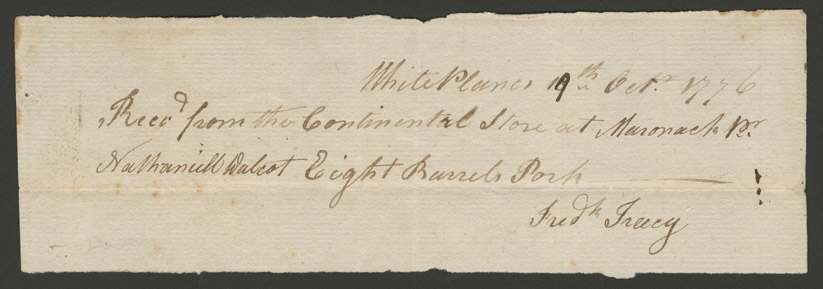 White Planes 19th Octr. 1776
Recd from the Continental Store at Maronack Pr.
Nathaniell Walcot Eight Barrels Pork
Fredk Tracy